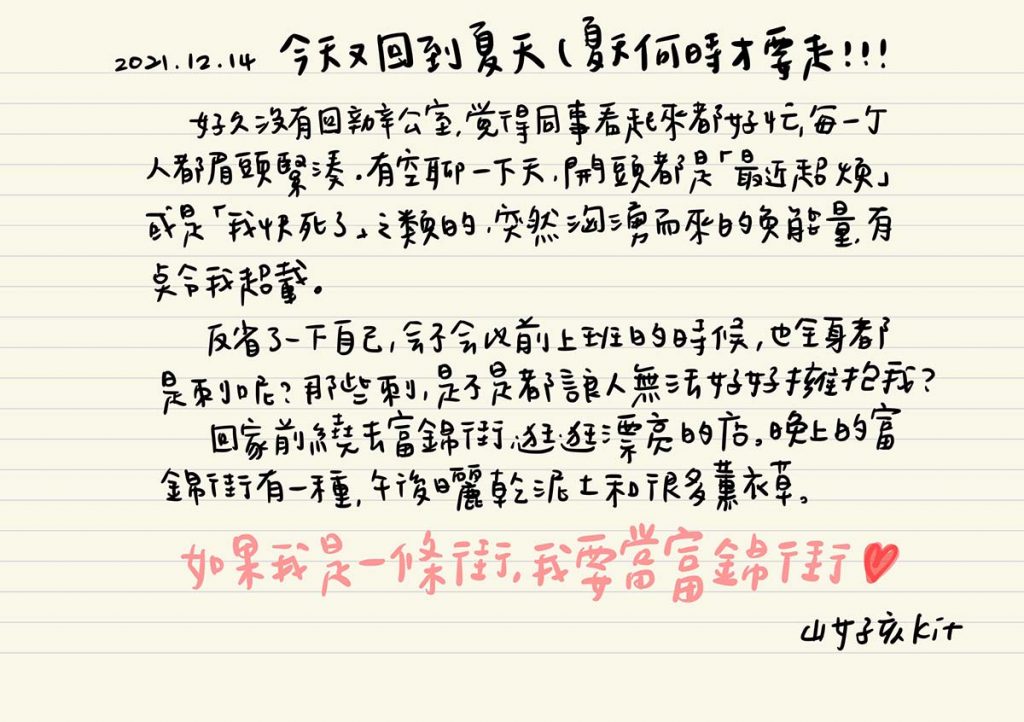 2021.12.14 今天又回到夏天(夏天何時才要走!!!
好久沒有回辦公室,覺得同事看起來都好忙,每一个
人都眉頭緊湊。有空聊一下天,開頭都是「最近超煩」
或是「我快死了」之類的,突然洶湧而來的負能量,有
點令我超載。
反省了一下自己,會不會以前上班的時候,也全身都
是刺呢?那些刺,是不是都讓人無法好好擁抱我?
回家前繞去富錦街逛逛漂亮的店。晚上的富
錦街有一種,午後曬乾泥土和很多薰衣草。
如果我是一條街,我要當富錦街
山女孩Kit